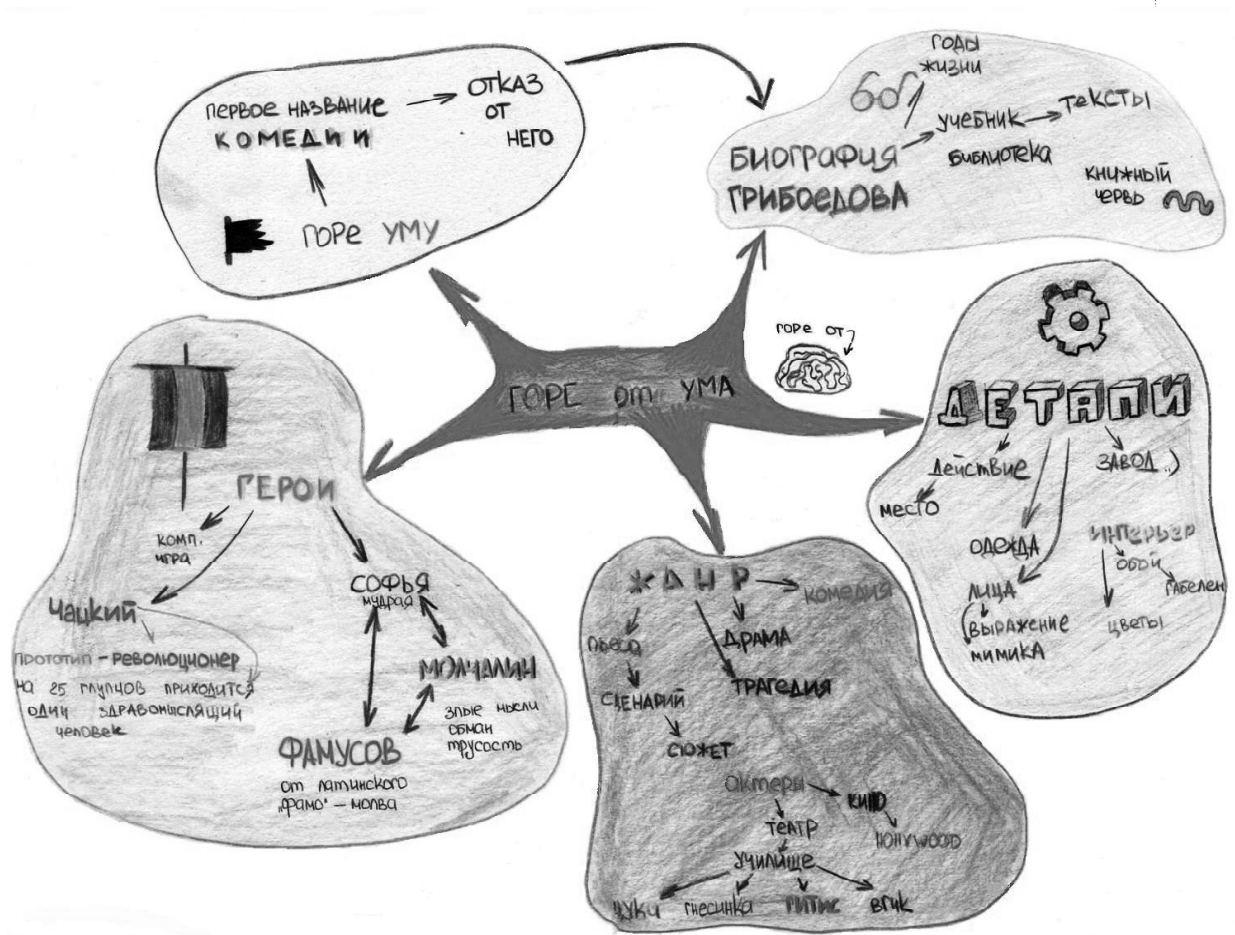 ПЕРВОЕ НАЗВАНИЕ
КОМЕДИИ
ОТКАЗ
ОТ
НЕГО
ГОРЕ УМУ
ГОДЫ
ЖИЗНИ
БИОГРАФИЯ
ГРИБОЕДОВА
УЧЕБНИК
ТЕКСТЫ
БИБЛИОТЕКА
КНИЖНЫЙ
ЧЕРВЬ
ГОРЕ ОТ
ГОРЕ от УМА
ДЕТАЛИ
ДЕЙСТВИЕ
МЕСТО
ЗАВОД..)
ОДЕЖДА
ЛИЦА
ВЫРАЖЕНИЕ
МИМИКА
ИНТЕРЬЕР
ОБОИ
ГАБЕЛЕН
ЦВЕТЫ
ГЕРОИ
КОМП.
ИГРА
ЧАЦКИЙ
ПРОТОТИП – РЕВОЛЮЦИОНЕР
НА 25 ГЛУПЦОВ ПРИХОДИТСЯ
ОДИН ЗДРАВОМЫСЛЯЩИЙ
ЧЕЛОВЕК
СОФЬЯ
МУДРАЯ
МОЛЧАЛИН
ЗЛЫЕ МЫСЛИ
ОБМАН
ТРУСОСТЬ
ФАМУСОВ
ОТ ЛАТИНСКОГО
„ФАМО" – МОЛВА
ЖАНР
КОМЕДИЯ
ДРАМА
ТРАГЕДИЯ
ПЬЕСА
СЦЕНАРИЙ
СЮЖЕТ
АКТЕРЫ
КИНО
HOLLYWOOD
ТЕАТР
УЧИЛИЩЕ
ГНЕСИНКА
ГИТИС
ВГИК